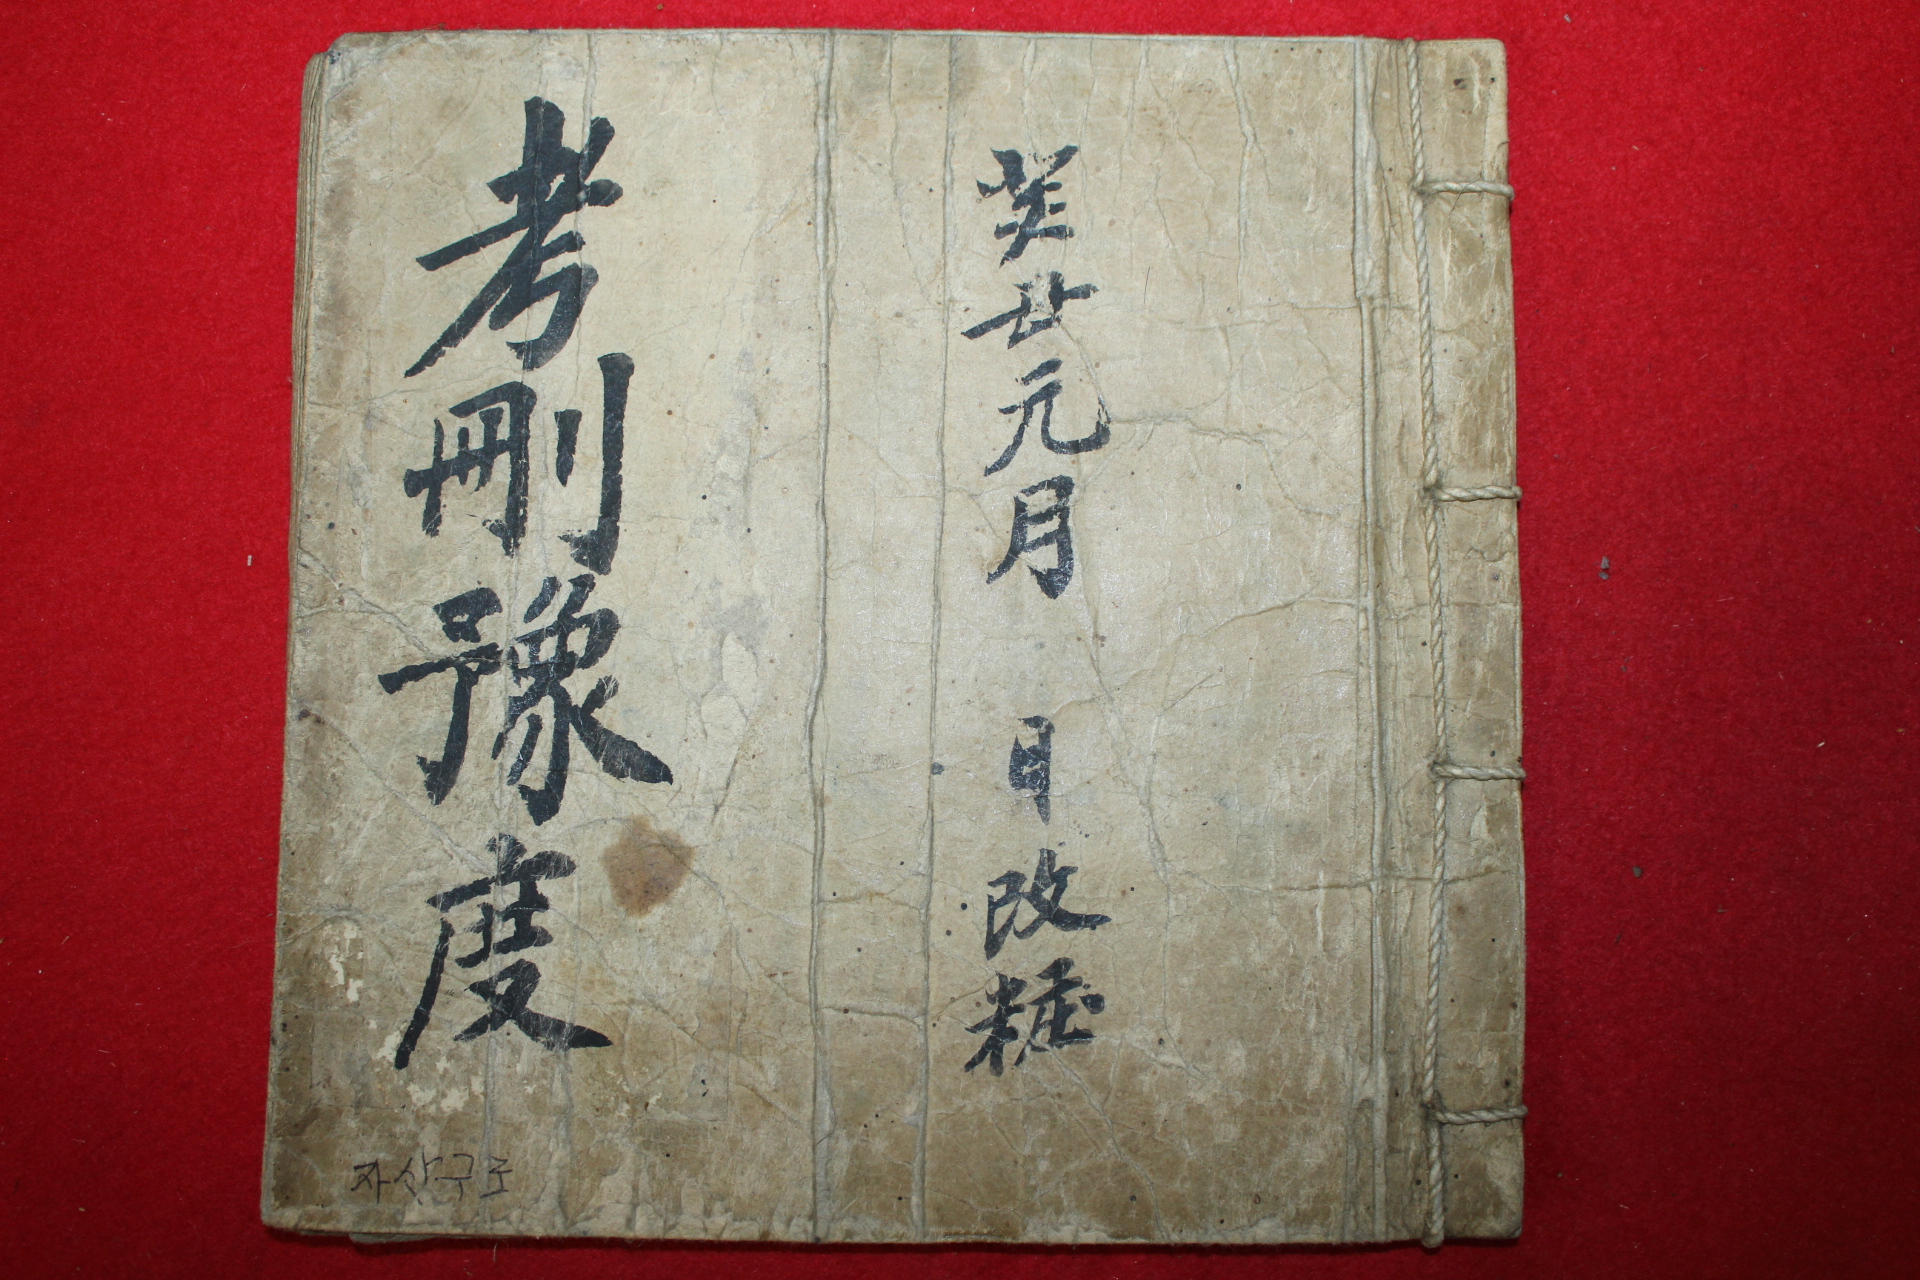 癸丑元月 日改粧
考刪豫度
자산구조